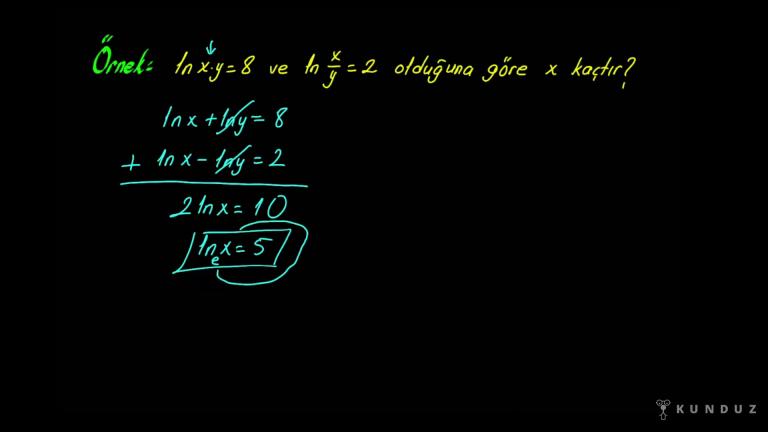 Örnek: ln x·y = 8 ve ln x/y = 2 olduğuna göre x kaçtır?
ln x + ln y = 8
+ ln x - ln y = 2
2 ln x = 10
ln_e x = 5
KUNDUZ